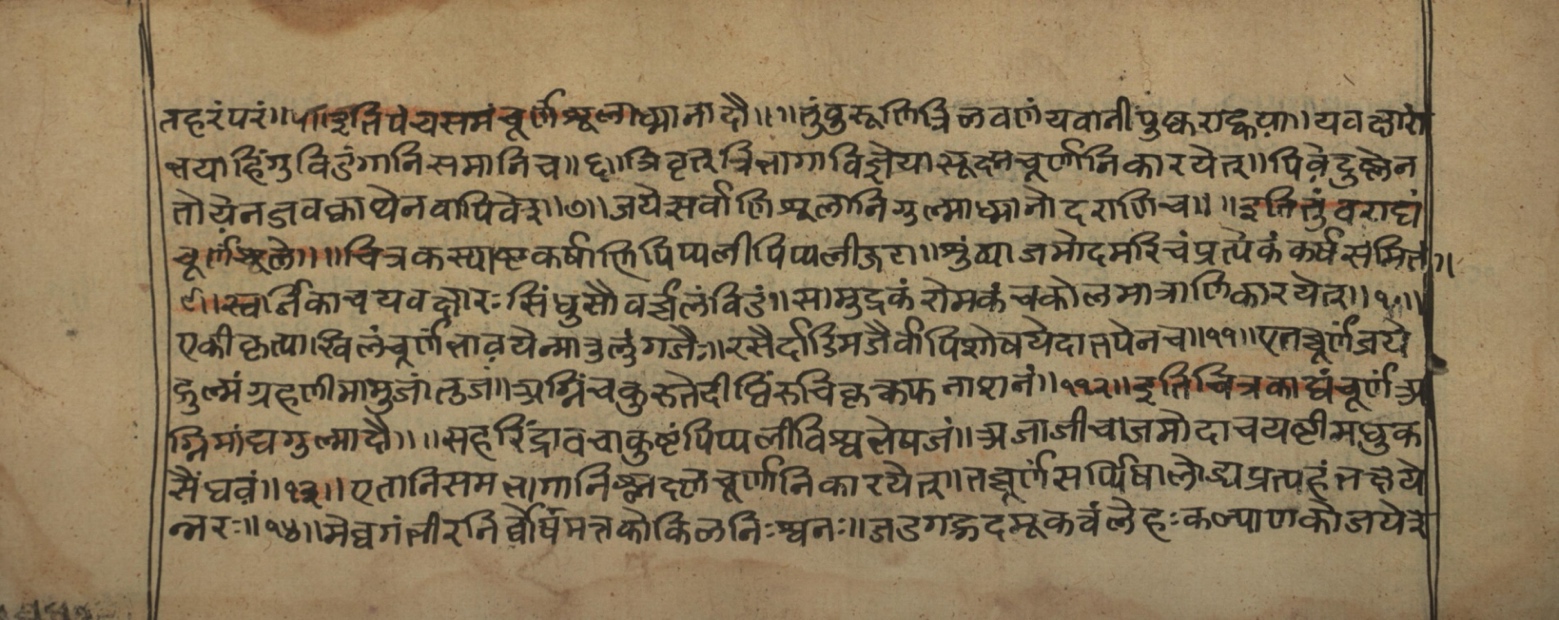 तहरंपरं॥५॥इतिपंचसमंचूर्णंशूलाध्मानादौ॥॥तुंवुरूणित्रिलवणंयवानीपुष्कराह्वया॥यवक्षारा
भयाहिंगुविडंगानिसमानिच॥६॥त्रिवृत्त्रिभागाविज्ञेयासूक्ष्मचूर्णानिकारयेत्॥पिवेदुष्णेन
तोयेनजवक्वाथेनवापिवेत्॥७॥जयेसर्वाणिशूलानिगुल्माध्मानोदराणिच॥॥इतितुंवराद्यं
चूर्णंशूले॥॥चित्रकस्याष्टकर्षाणिपिप्पलीपिप्पलीजटा॥शुंठ्याजमोदमरिचंप्रत्येकंकर्षसंमितं॥
९॥स्वर्जिकाचयवक्षारःसिंधुसौवर्च्चलंविडं॥सामुद्रकंरोमकंचकोलमात्राणिकारयेत्॥१०॥
एकीकृत्याखिलंचूर्णंभावयेन्मातुलुंगजैः॥रसैर्दाडिमजैर्वापिशोषयेदातपेनच॥११॥एतच्चूर्णंजये
द्गुल्मंग्रहणीमामजांरुजां॥अग्निंचकुरुतेदीप्तिंरुचिकृत्कफनाशनं॥११२॥इतिचित्रकाद्यंचूर्णंअ
ग्निमांद्यगुल्मादौ॥॥सहरिद्रावचाकुष्टंपिप्पलीविश्वभेषजं॥अजाजीचाजमोदाचयष्टीमधुक
सैंधवं॥१३॥एतानिसमभागानिश्लक्ष्णचूर्णानिकारयेत्॥तच्चूर्णंसर्प्पिषालोड्यप्रत्यहंभक्षये
न्नरः॥१४॥मेघगंभीरनिर्घोषोमत्तकोकिलनिःश्वनः॥जडगद्गदमूकत्वंलेहःकल्याणकोजयेत्